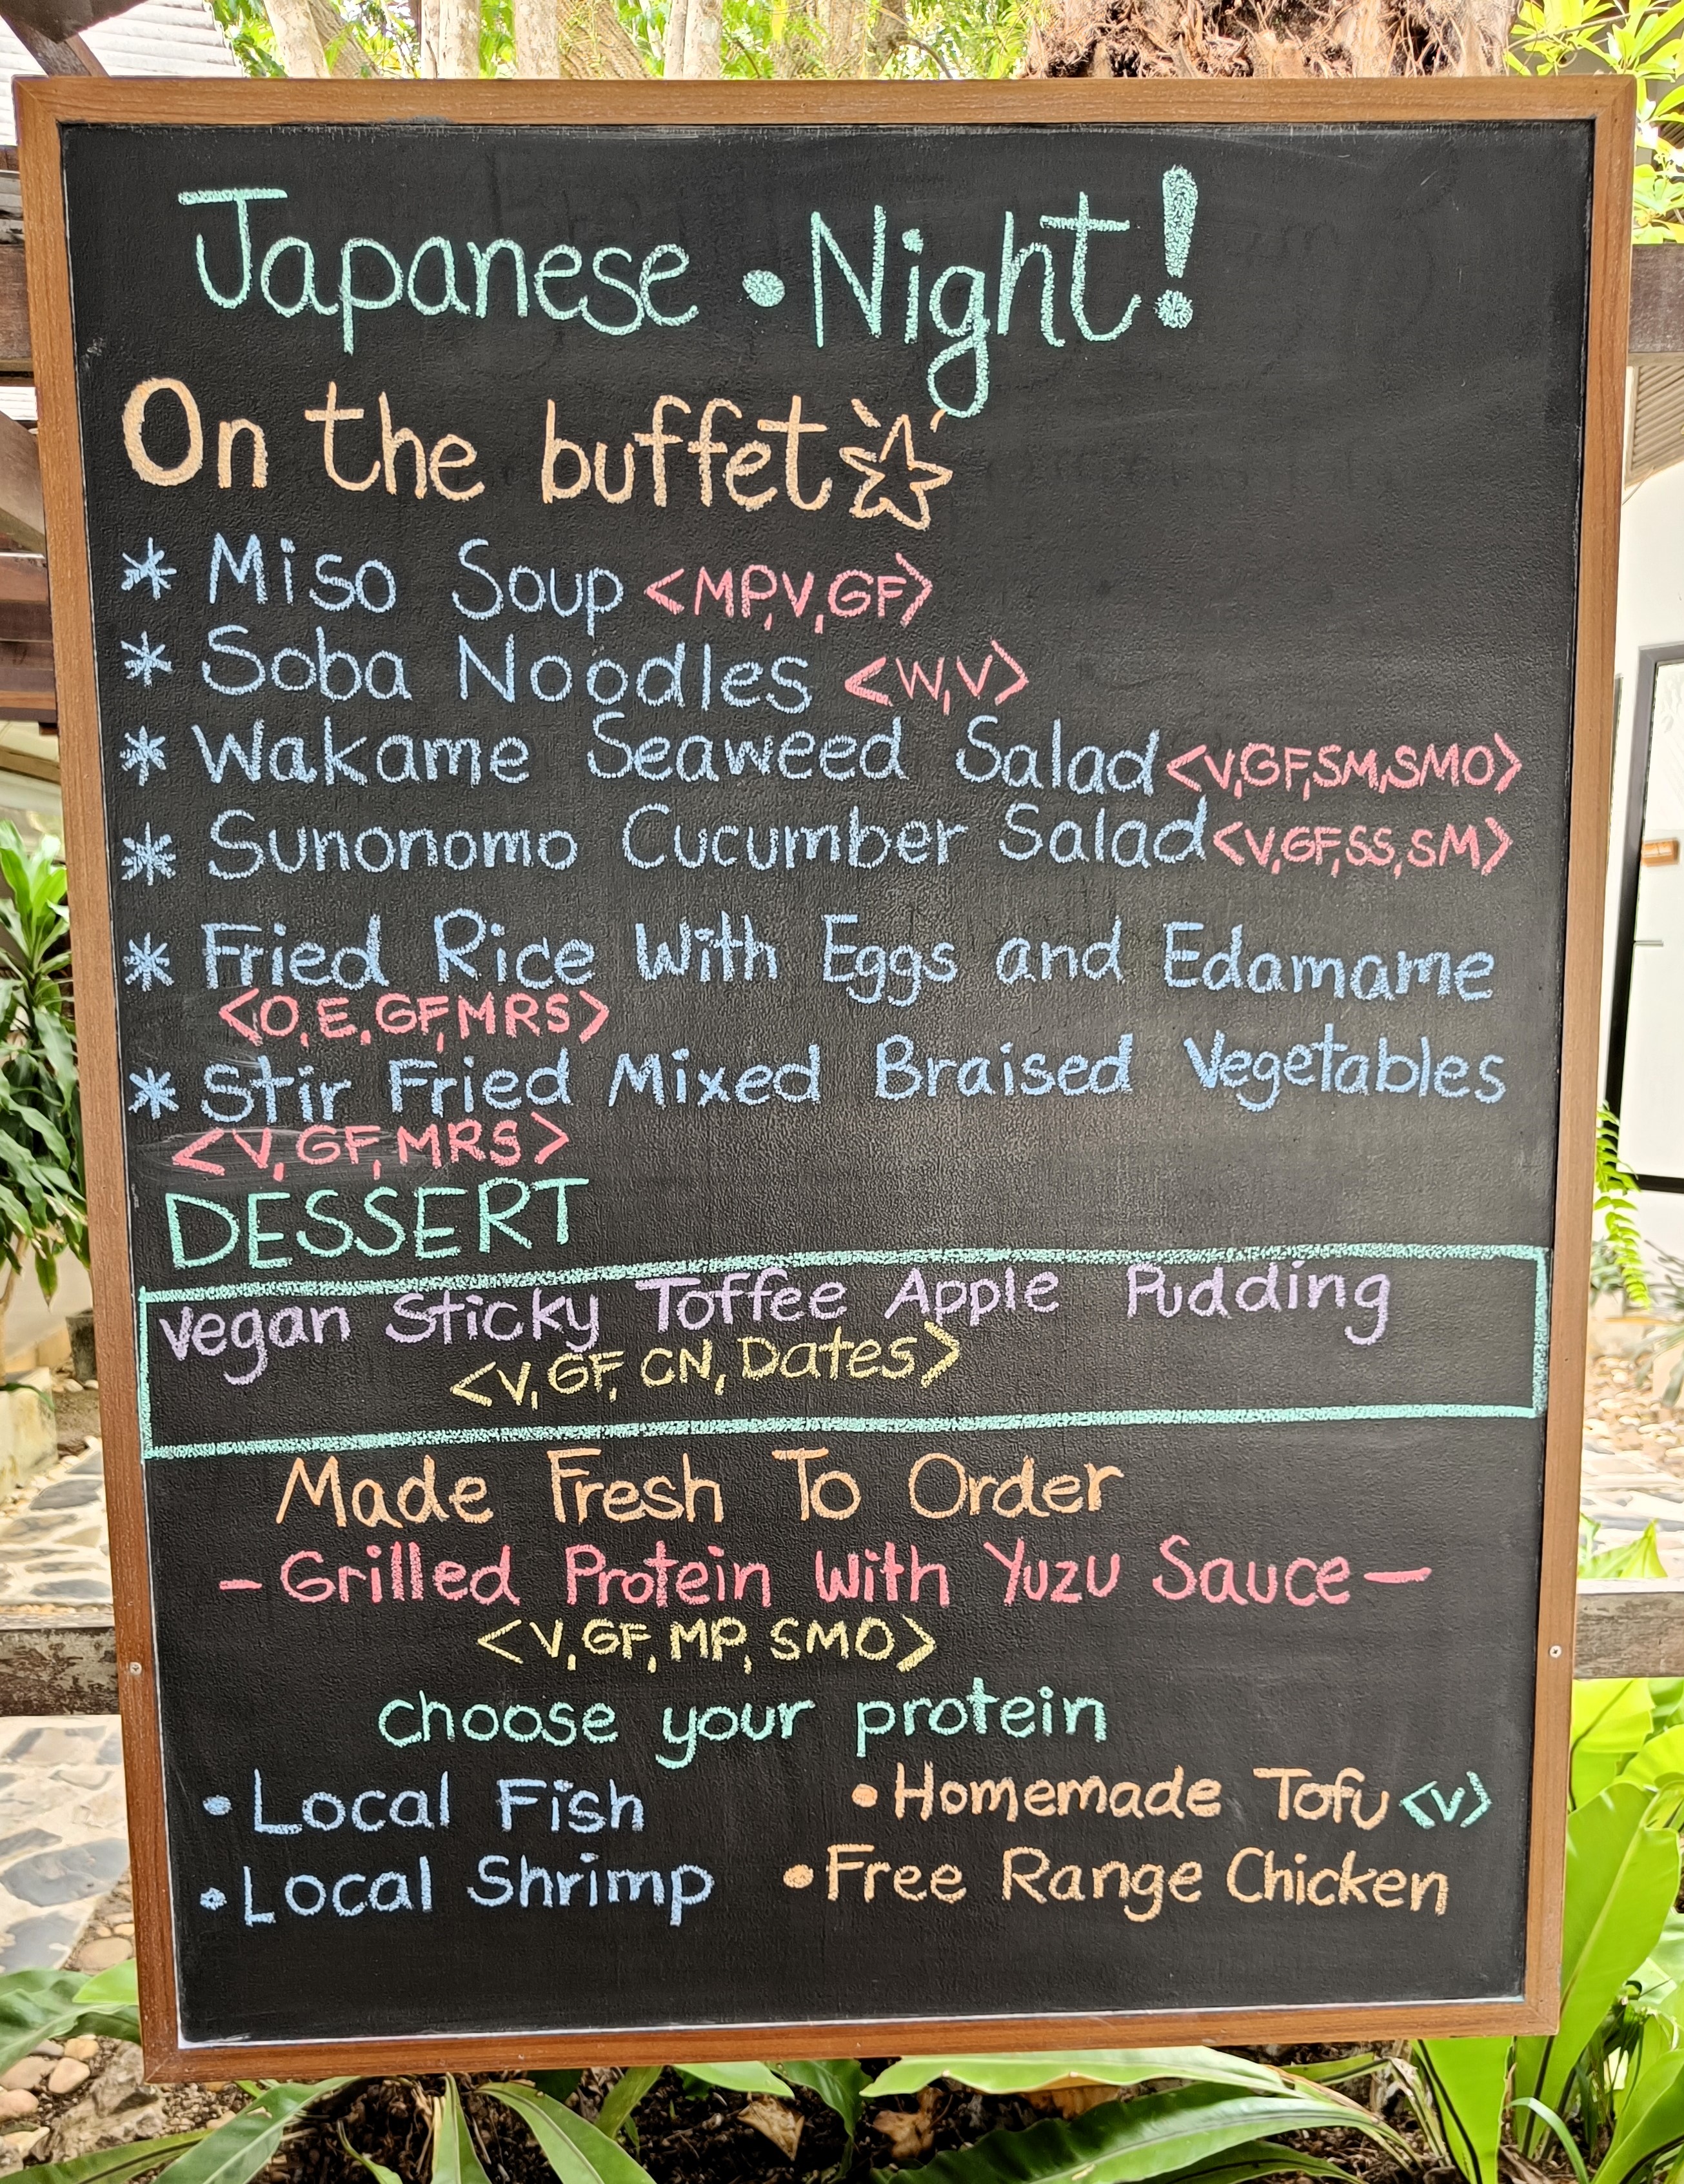 Japanese • Night!
On the buffet☆
* Miso Soup <MP,V,GF>
* Soba Noodles <W,V>
* Wakame Seaweed Salad <V,GF,SM,SMO>
* Sunonomo Cucumber Salad <V,GF,SS,SM>
* Fried Rice With Eggs and Edamame
<O,E,GF,MRS>
* Stir Fried Mixed Braised Vegetables
<V,GF,MRS>
DESSERT
Vegan Sticky Toffee Apple Pudding
<V,GF,CN,Dates>
Made Fresh To Order
- Grilled Protein With Yuzu Sauce -
<V,GF,MP,SMO>
choose your protein
• Local Fish
• Homemade Tofu <V>
• Local Shrimp
• Free Range Chicken